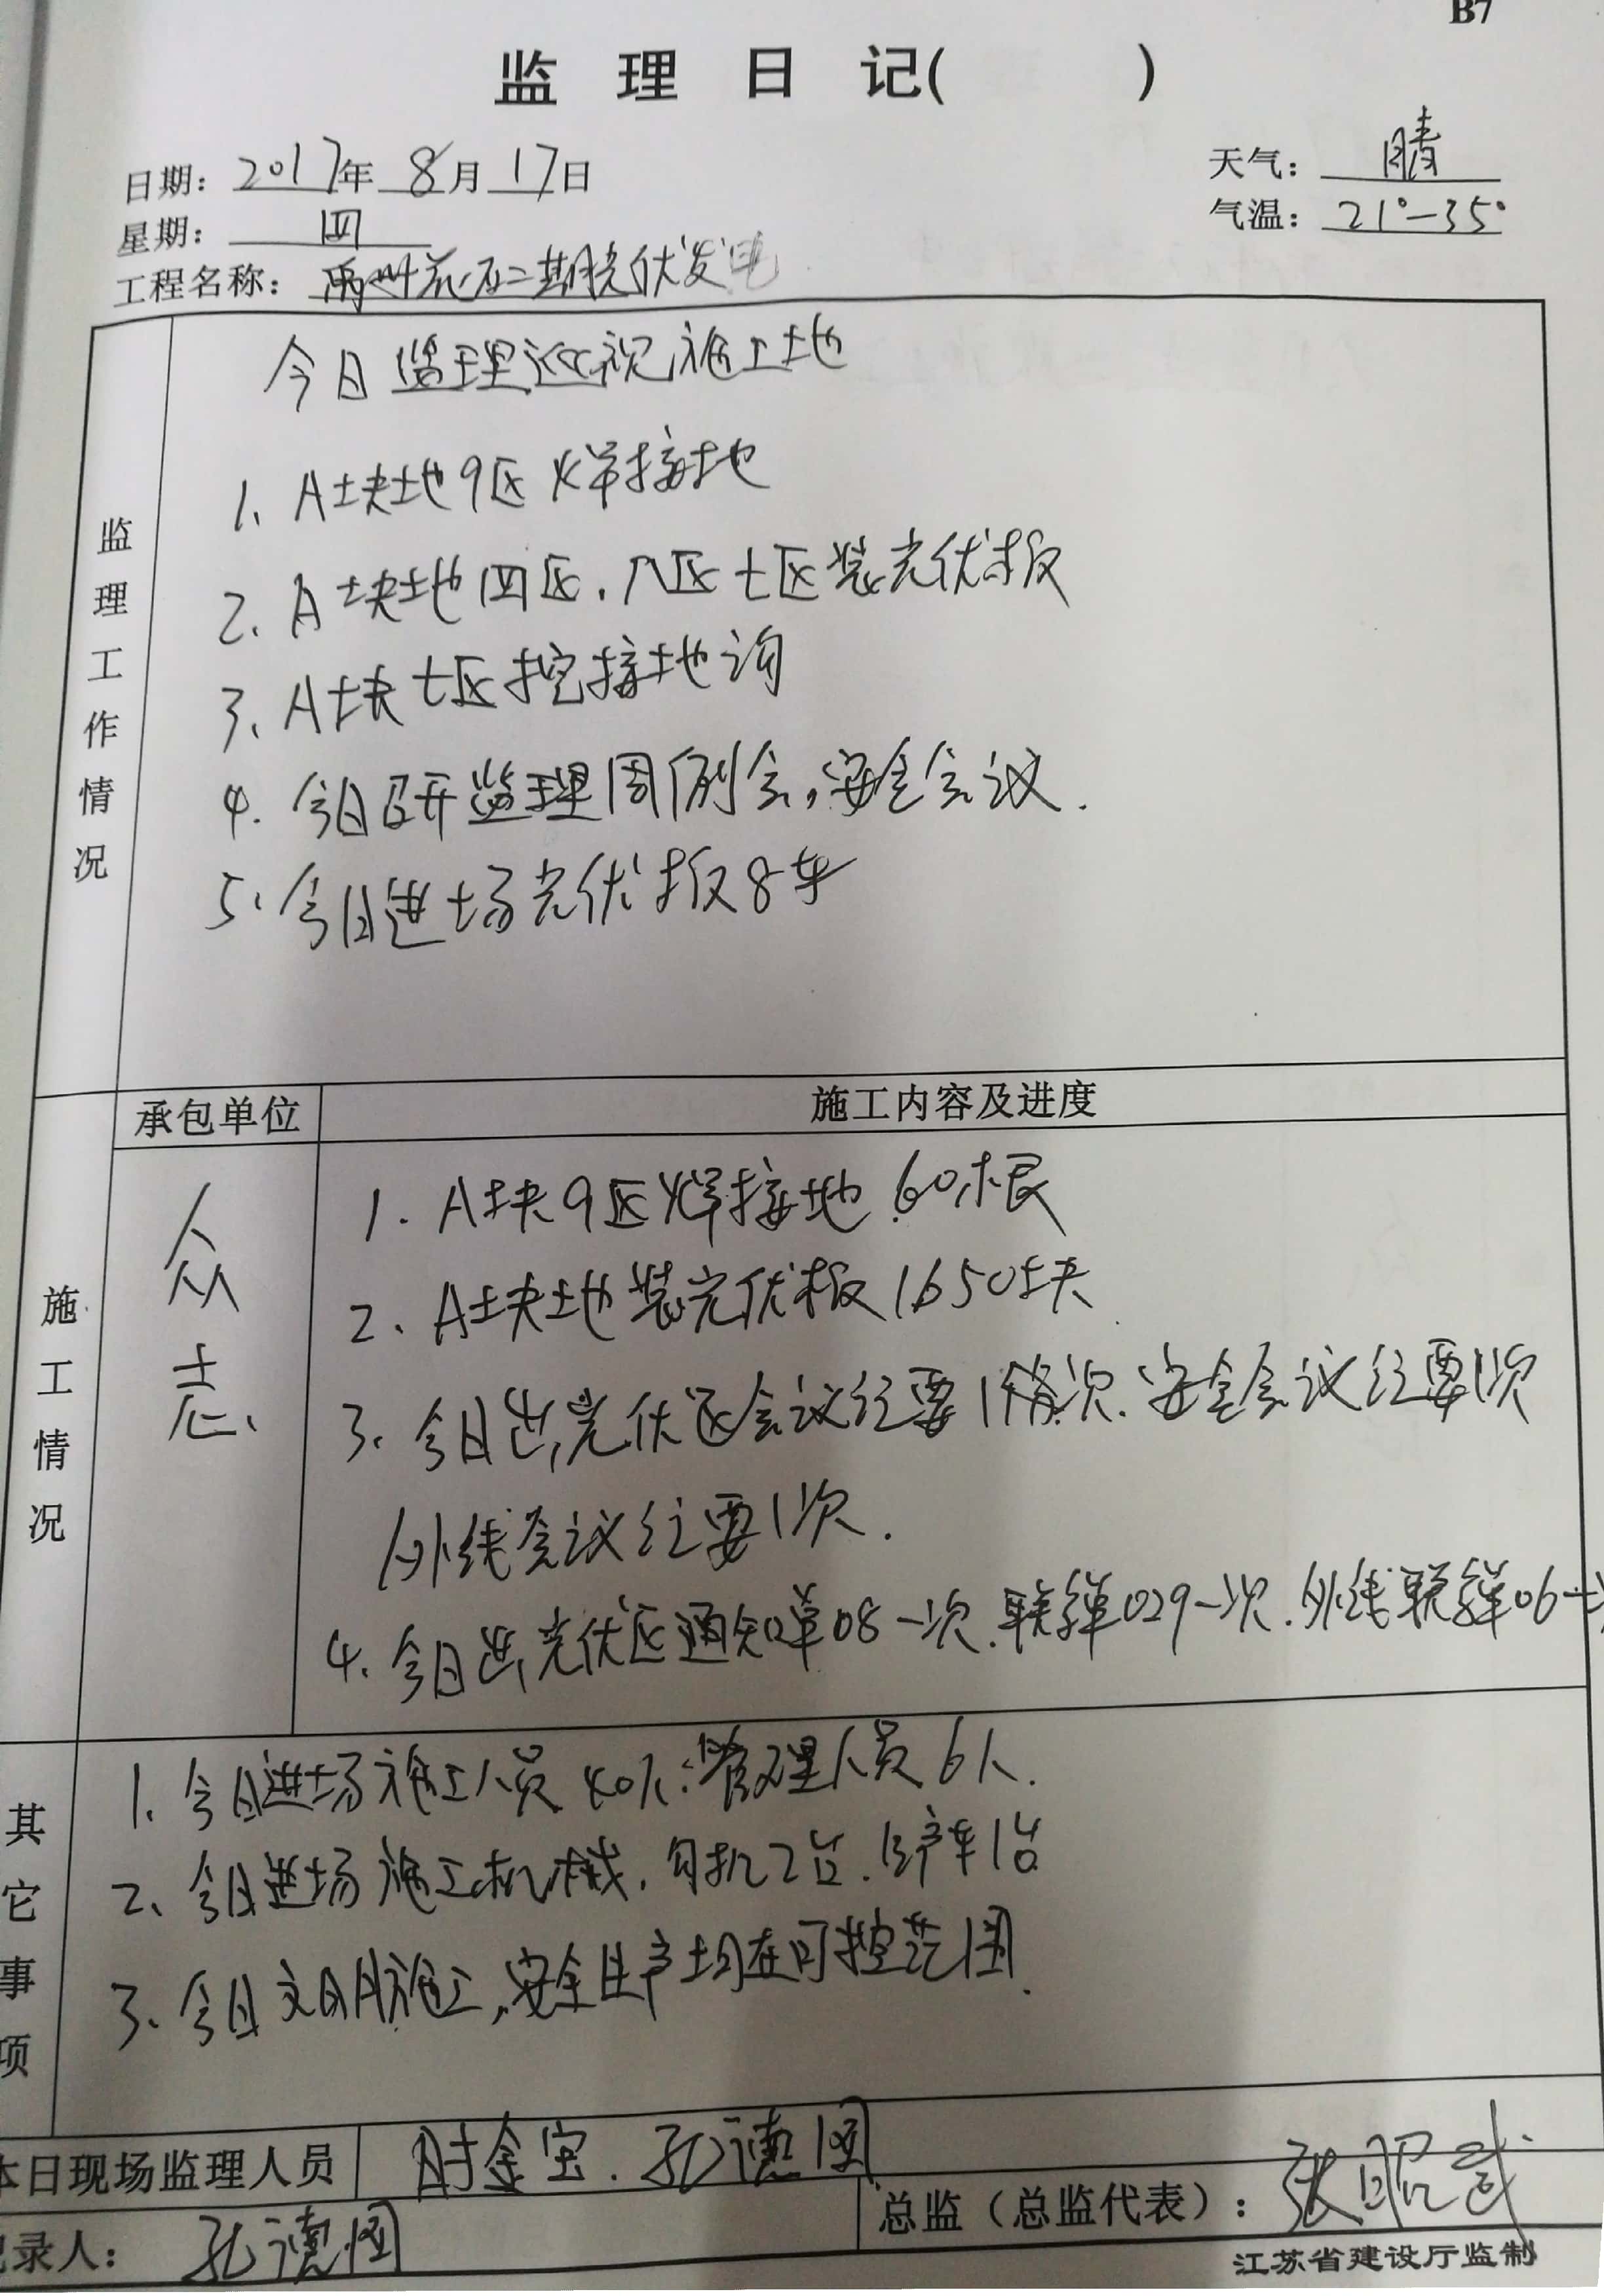 B7
监理日记(  )
日期：2017年8月17日
天气：晴
星期：四
气温：21°-35°
工程名称：禹州花石二期光伏发电
监理工作情况
今日监理巡视施工地
1、A块地9区焊接地
2、A块地四区、八区七区装光伏板
3、A块七区挖接地沟
4、今日召开监理周例会，安全会议.
5、今日进场光伏板8车
承包单位
施工内容及进度
施工情况
众志
1、A块9区焊接地60根
2、A块地装光伏板1650块
3、今日出光伏区会议纪要1次、安全会议纪要1次
外线会议纪要1次.
4、今日出光伏区通知单08一次、联系单029一次、外线联系单06一
其它事项
1、今日进场施工人员40人；管理人员6人.
2、今日进场施工机械，勾机2台、车1台
3、今日文明施工，安全生产均在可控范围.
本日现场监理人员
时金宝、孔德国
总监（总监代表）：张昭武
记录人：孔德国
江苏省建设厅监制